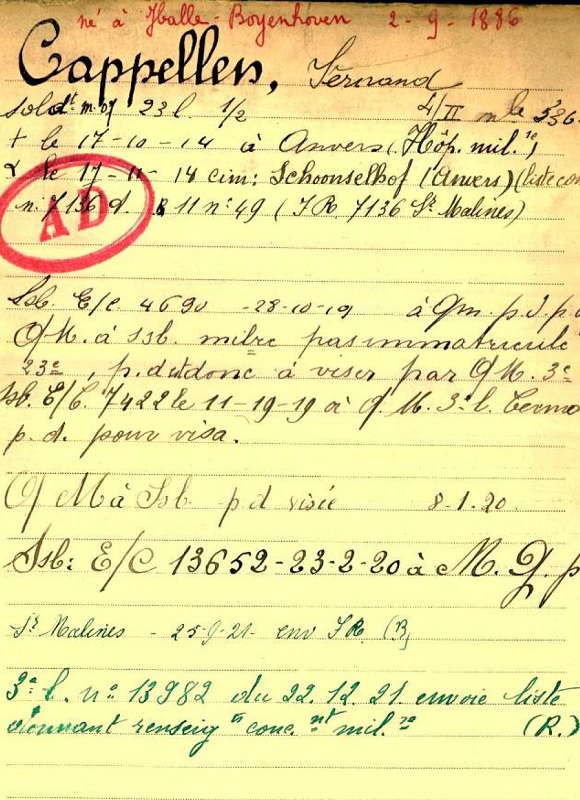 né à Halle-Boyenhoven 2-9-1886
Cappellen, Fernand
soldt m. 07 23 l. 1/2 4/II mle 536
+ le 17-10-14 à Anvers (Hôp. mil.re)
le 17-11-14 cim: Schoonselhof (Anvers) (liste con
n. 7136 d. 11 n° 49 (SR 7136 Sr Malines)
AD
Ssb. E/C 4690 -28-10-19 à Qm. p.
QM. à ssb. milre pas immatriculé
23e, p. d. donc à viser par QM. 3e
Ssb. E/C. 7422 le 11-19-19 à QM. 3e l.
p. d. pour visa.
QM à Ssb p d visée 8-1-20
Ssb: E/C 13652-23-2-20 à M.
Sr Malines - 25-9-21- env SR. (R)
3e l. n° 13982 du 22.12.21 envoie liste
donnant renseig ts conc. nt mil. re (R.)